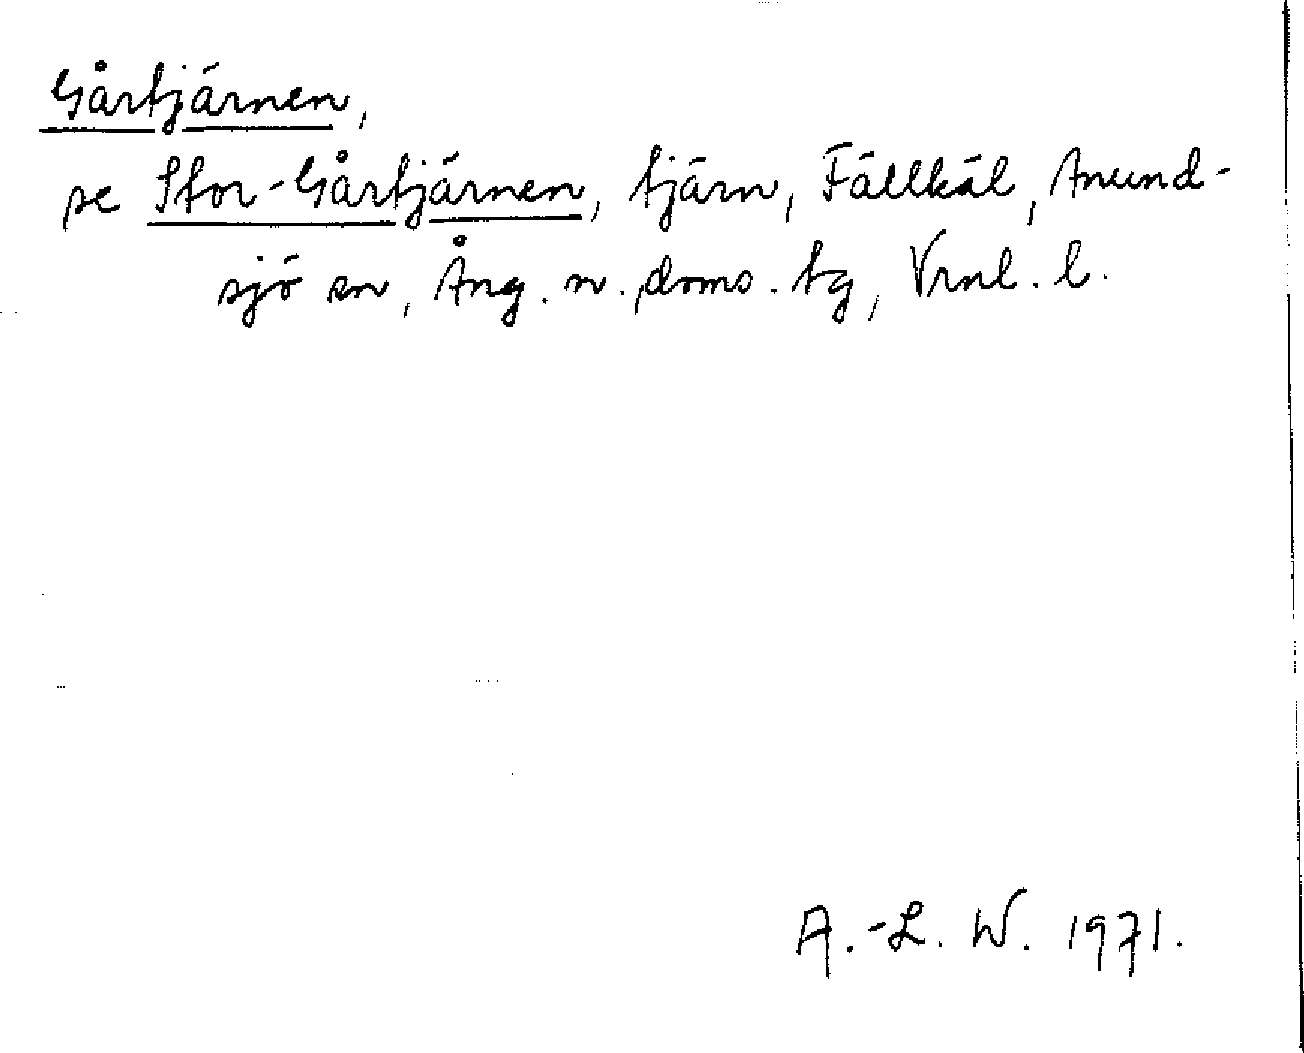 Gårtjärnen,
se Stor-Gårtjärnen, tjärn, Fällkäl, Anund-
sjö sn, Ång. n. doms. tg, Vrnl. l.
A.-L. W. 1971.